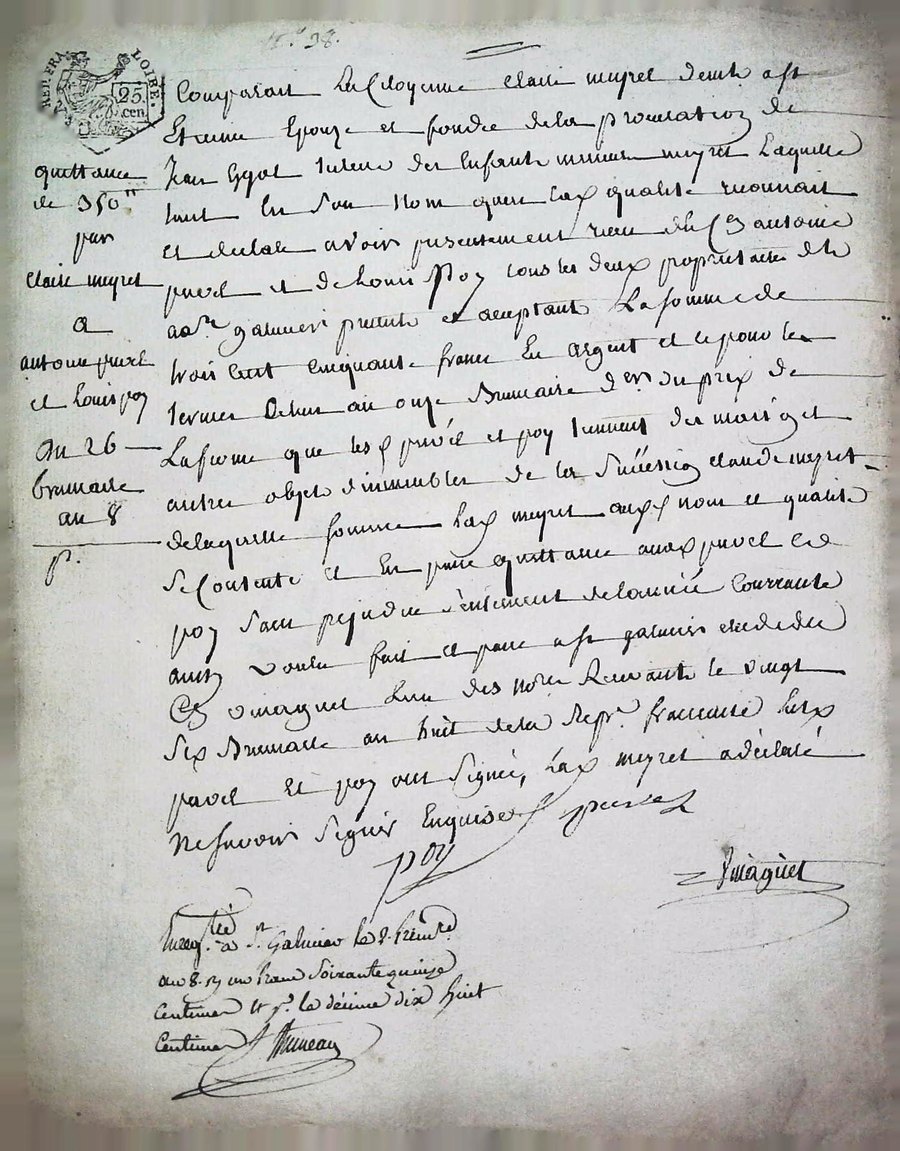 N.° 38.
REP. FRA.
LOIRE.
25.
cen.
quittance
de 350
par
claire meyret
a
antoine privel
et louis poy
Du 26
brumaire
an 8
p.
Comparait La Citoyenne claire meyret demte a St
Etienne Epouze et fondée de la procuration de
Jean tuteur des Enfants mineurs meyret Laquelle
tant En Son nom quen qualité reconnait
et declare avoir presentement recu du Cen antoine
privel et de Louis Poy tous les deux proprietaires de la
galmier presents et aceptants La Somme de
trois cent cinquante francs En argent et ce pour les
termes Echus au onze Brumaire der du prix de
La ferme que les privel et poy tiennent des maison et
autres objets dimmeubles de la Suĉession claude meyret
de laquelle Somme Lad meyret auxd nom et qualité
Se Contente et En passe quittance auxd privel et
poy Sans prejudice de lannée Courrante
ainsy voulu fait et passé a St galmier etude du
Cen vmagnet Lun des notres Recevants le vingt
Six Brumaire an huit de la Repe. francaise Lesd
privel Et poy ont Signés, Lad meyret a déclaré
Ne Savoir Signer Enquise privel
poy
Vmagnet
Enregtrée a St. Galmier le 2. frimre
an 8. un franc Soixante quinze
Centimes et pr. le décime dix huit
Centimes